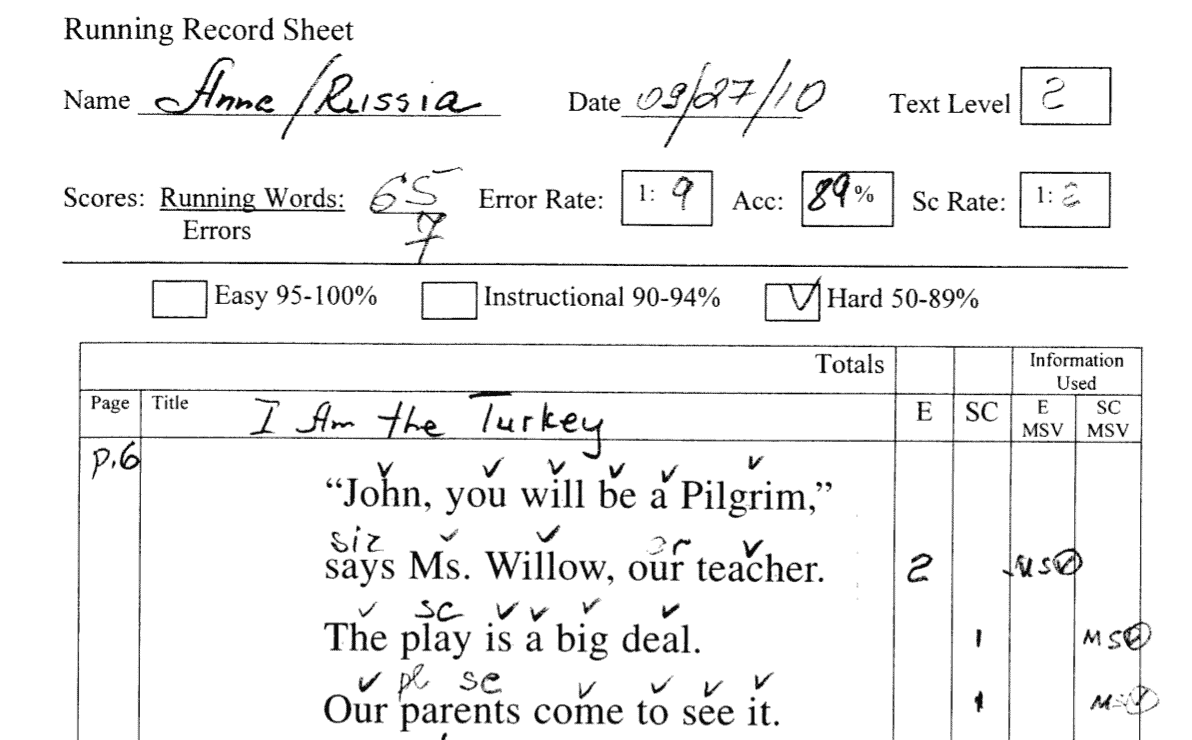 Running Record Sheet
Name Anne/Russia Date 09/27/10 Text Level 2
Scores: Running Words: 65 Error Rate: 1: 9 Acc: 89% Sc Rate: 1: 2
Errors 7
Easy 95-100% ✓ Instructional 90-94% Hard 50-89%
Totals Information Used
Page Title I Am the Turkey E SC E MSV SC MSV
p.6
✓ ✓ ✓ ✓ ✓ ✓
“John, you will be a Pilgrim,”
siz ✓ ✓ or ✓
says Ms. Willow, our teacher. 2 MSV
✓ sc ✓ ✓ ✓ ✓
The play is a big deal. 1 MSV
✓ pl sc ✓ ✓ ✓ ✓
Our parents come to see it. 1 MSV